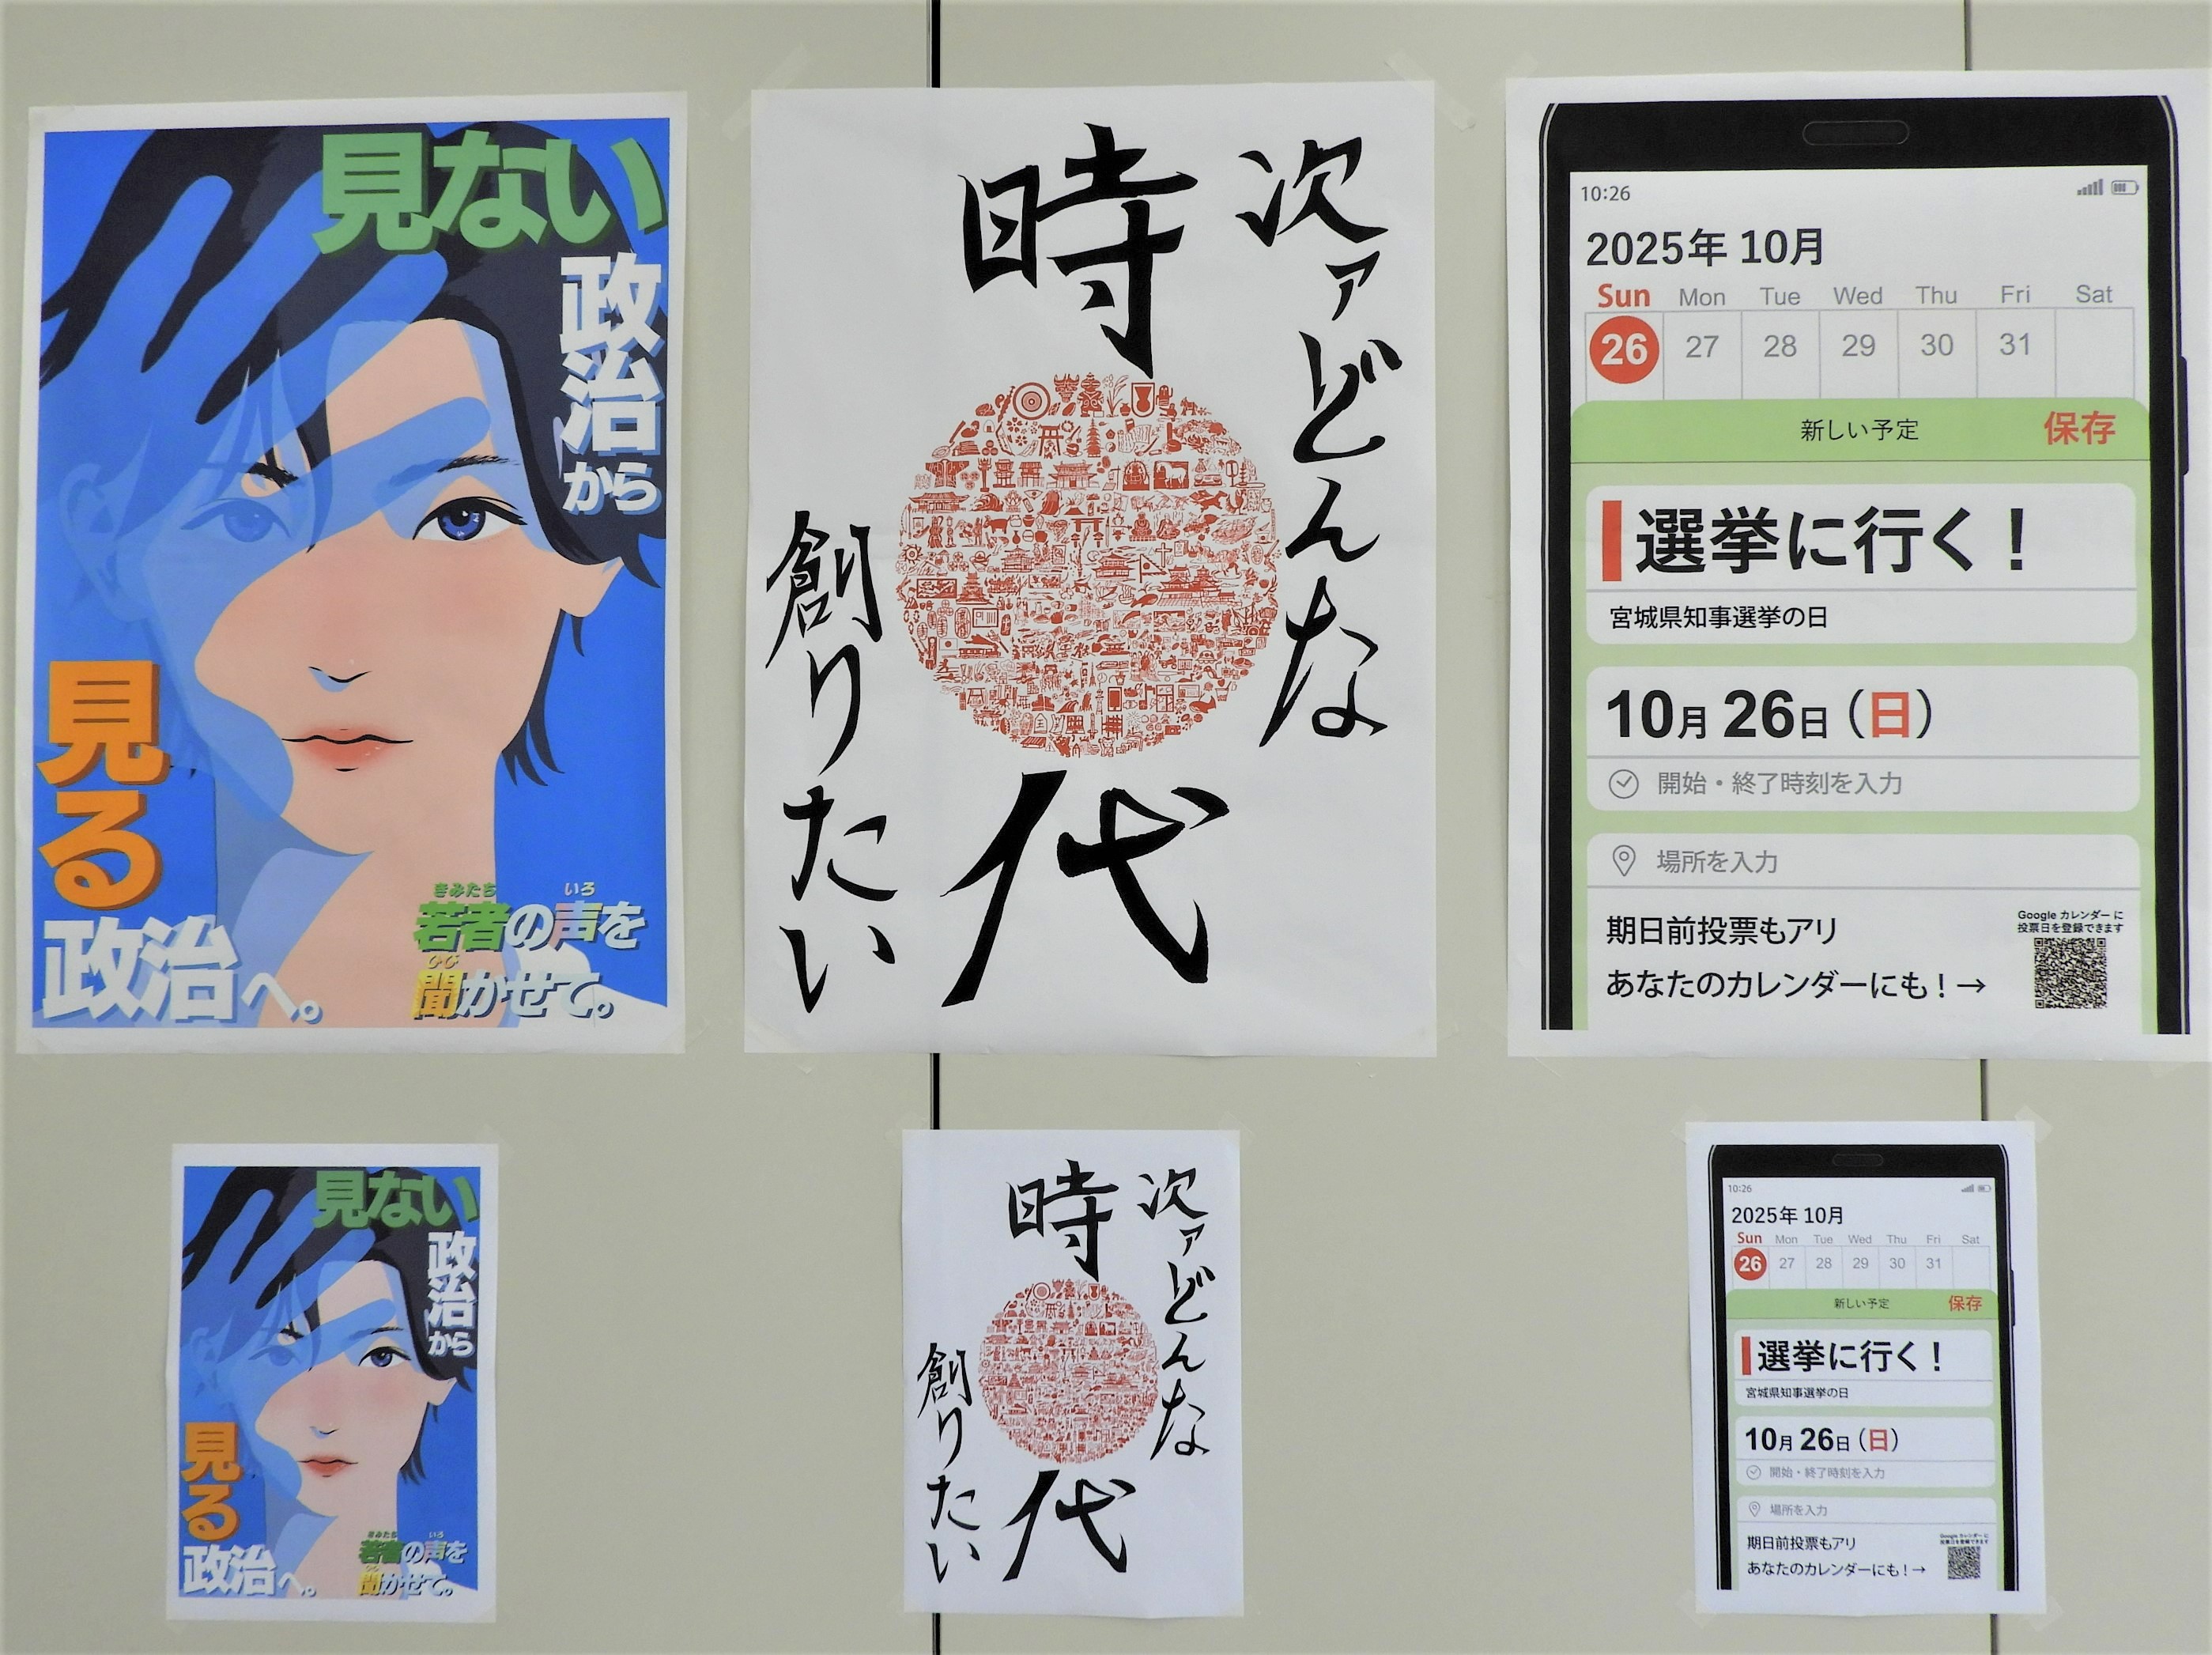 見ない
政治から
見る
政治へ。
きみたち いろ
若者の声を
聞かせて。
次ァどんな
時代
創りたい
10:26
2025年 10月
Sun Mon Tue Wed Thu Fri Sat
26 27 28 29 30 31
新しい予定 保存
選挙に行く！
宮城県知事選挙の日
10月 26日（日）
開始・終了時刻を入力
場所を入力
期日前投票もアリ
あなたのカレンダーにも！→
Google カレンダーに
投票日を登録できます
見ない
政治から
見る
政治へ。
きみたち いろ
若者の声を
聞かせて。
次ァどんな
時代
創りたい
10:26
2025年 10月
Sun Mon Tue Wed Thu Fri Sat
26 27 28 29 30 31
新しい予定 保存
選挙に行く！
宮城県知事選挙の日
10月 26日（日）
開始・終了時刻を入力
場所を入力
期日前投票もアリ
あなたのカレンダーにも！→
Google カレンダーに
投票日を登録できます